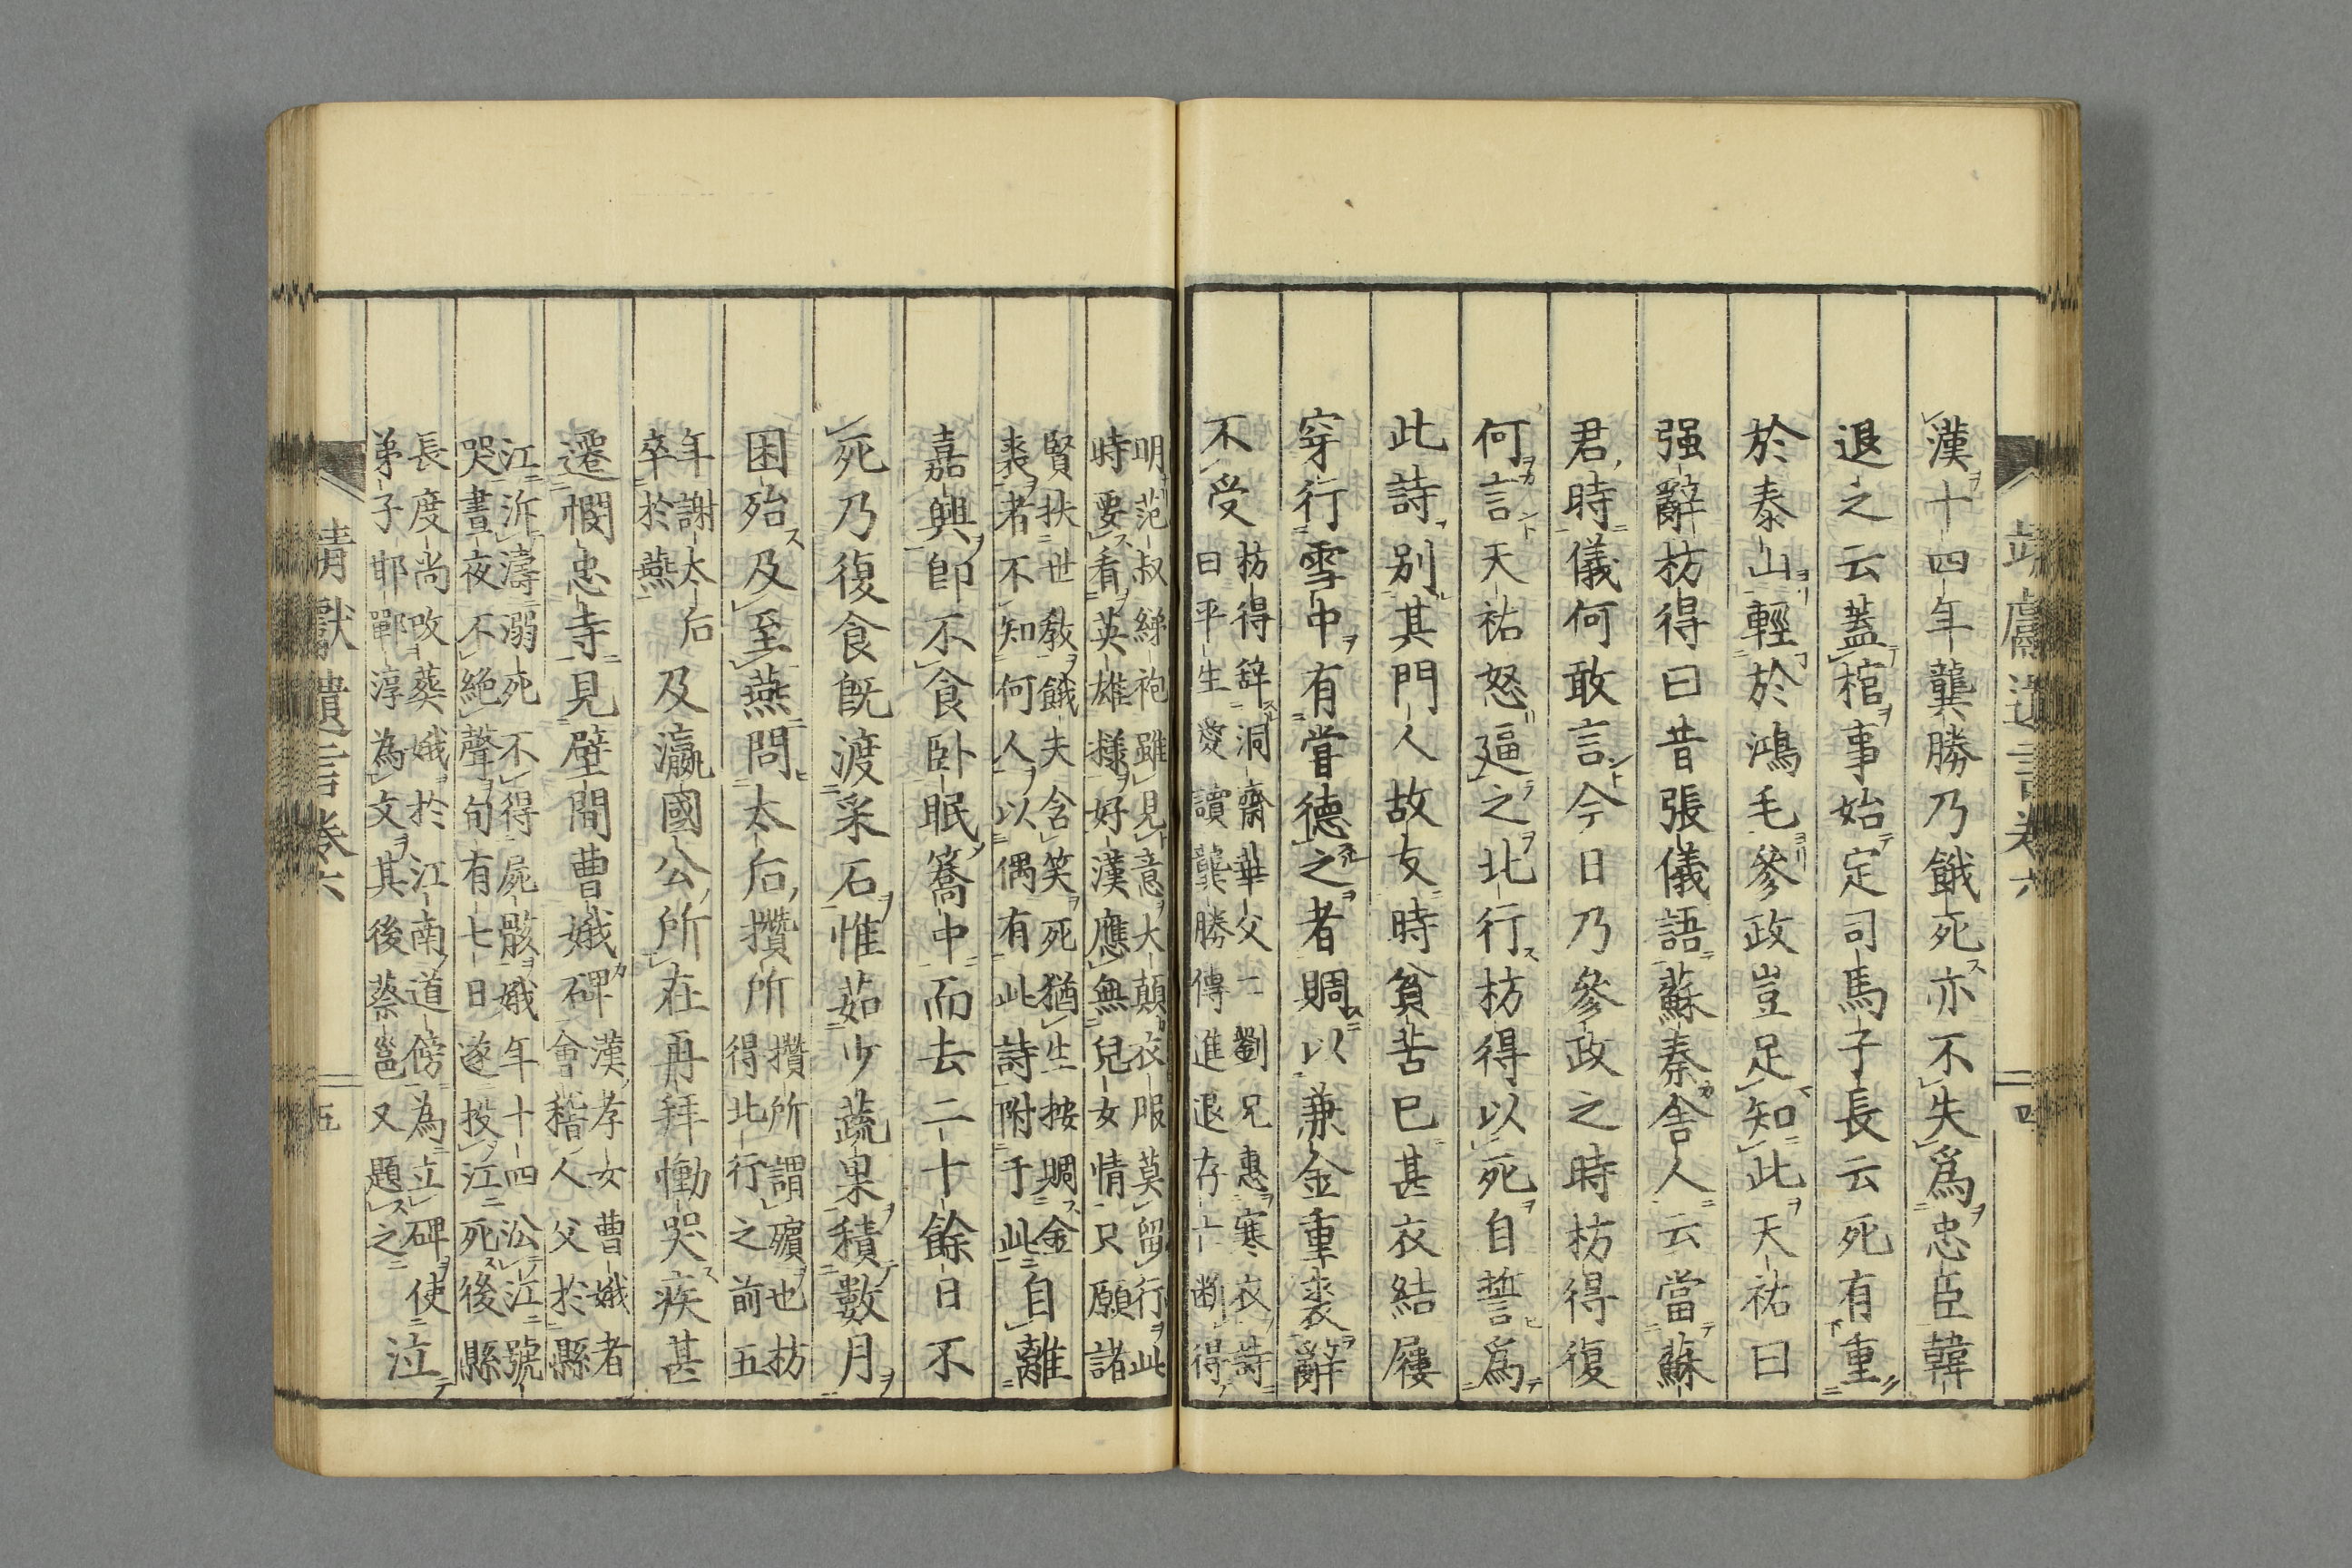 靖獻遺言卷六
四
漢十四年龔勝乃餓死亦不失爲忠臣韓
退之云蓋棺事始定司馬子長云死有重
於泰山輕於鴻毛參政豈足知此天祐曰
强辭枋得曰昔張儀語蘇秦舍人云當蘇
君時儀何敢言今日乃參政之時枋得復
何言天祐怒逼之北行枋得以死自誓爲
此詩別其門人故友時貧苦已甚衣結屨
穿行雪中有嘗德之者賙以兼金重裘辭
不受
枋得辭洞齋華父二劉兄惠寒衣詩
曰平生愛讀龔勝傳進退存亡斷得
明范叔綈袍雖見意大顛衣服莫留行此
時要看英雄樣好漢應無兒女情只願諸
賢扶世敎餓夫含笑死猶生按賙金
裘者不知何人以偶有此詩附于此
自離
嘉興卽不食卧眠簥中而去二十餘日不
死乃復食旣渡采石惟茹少蔬果積數月
困殆及至燕問太后攢所
攢所謂殯也枋
得北行之前五
年謝太后
卒於燕
及瀛國公所在再拜慟哭疾甚
遷憫忠寺見壁間曹娥碑
漢孝女曹娥者
會稽人父於縣
江泝濤溺死不得屍骸娥年十四沿江號
哭晝夜不絕聲旬有七日遂投江死後縣
長度尚改葬娥於江南道傍爲立碑使
弟子邯鄲淳為文其後蔡邕又題之
泣
靖獻遺言卷六
五